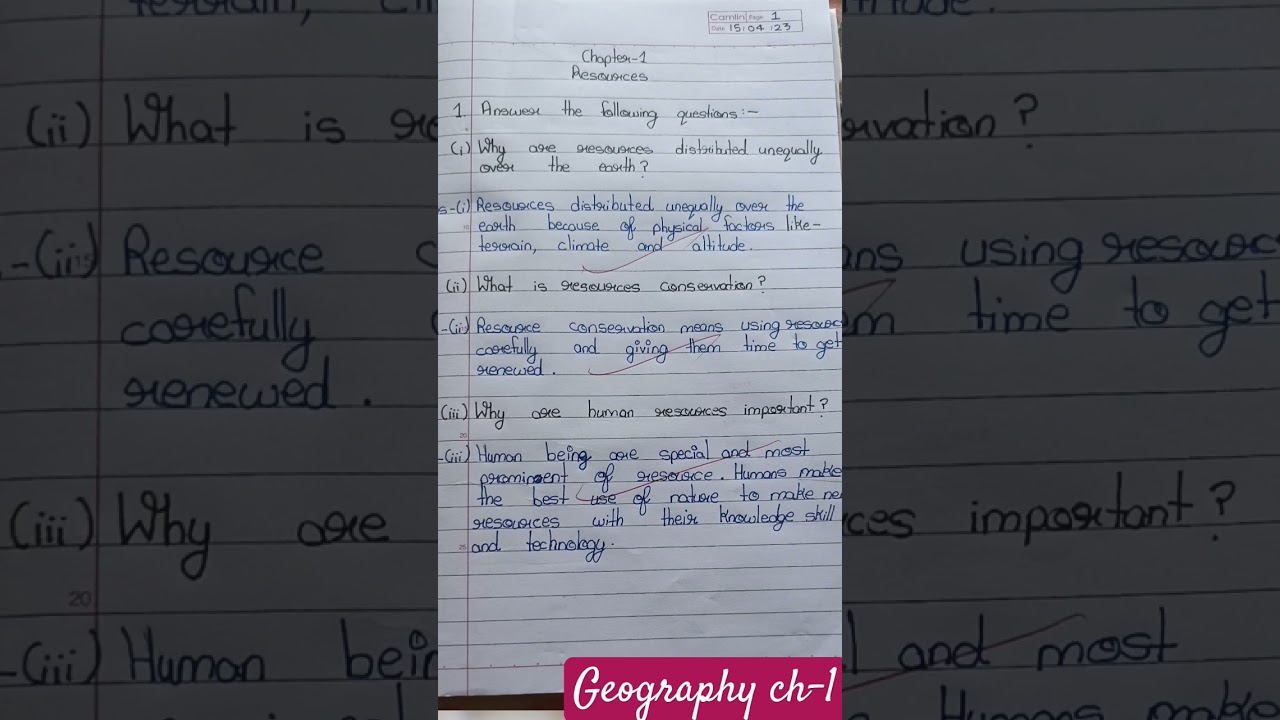 Camlin Page 1
Date 15.04.23
Chapter-1
Resources
1. Answer the following questions:-
(i) Why are resources distributed unequally
over the earth?
s-(i) Resources distributed unequally over the
earth because of physical factors like-
terrain, climate and altitude.
(ii) What is resources conservation?
-(ii) Resource conservation means using resourc
carefully and giving them time to get
renewed.
(iii) Why are human resources important?
20
-(iii) Human being are special and most
prominent of resource. Humans make
the best use of nature to make ne
resources with their knowledge skill
and technology.
25
Geography ch-1